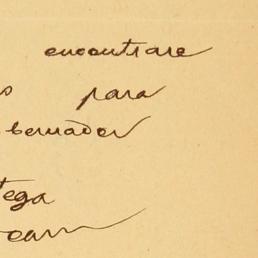 encontrare
s para
bernador
tega